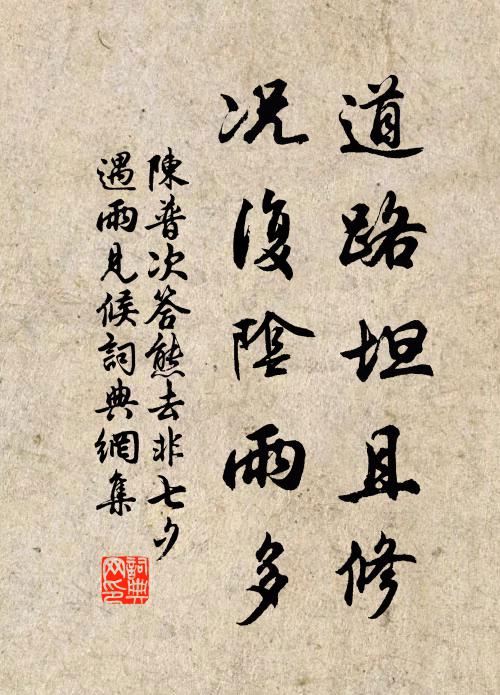 道路坦且修
况復陰雨多
陳普次答熊去非七夕
遇雨見候詞典網集
詞典
网印